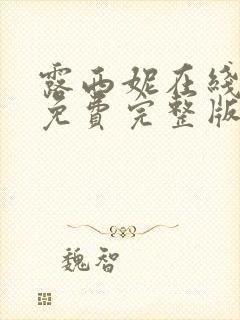 露西妮在线
免费完整版
魏智